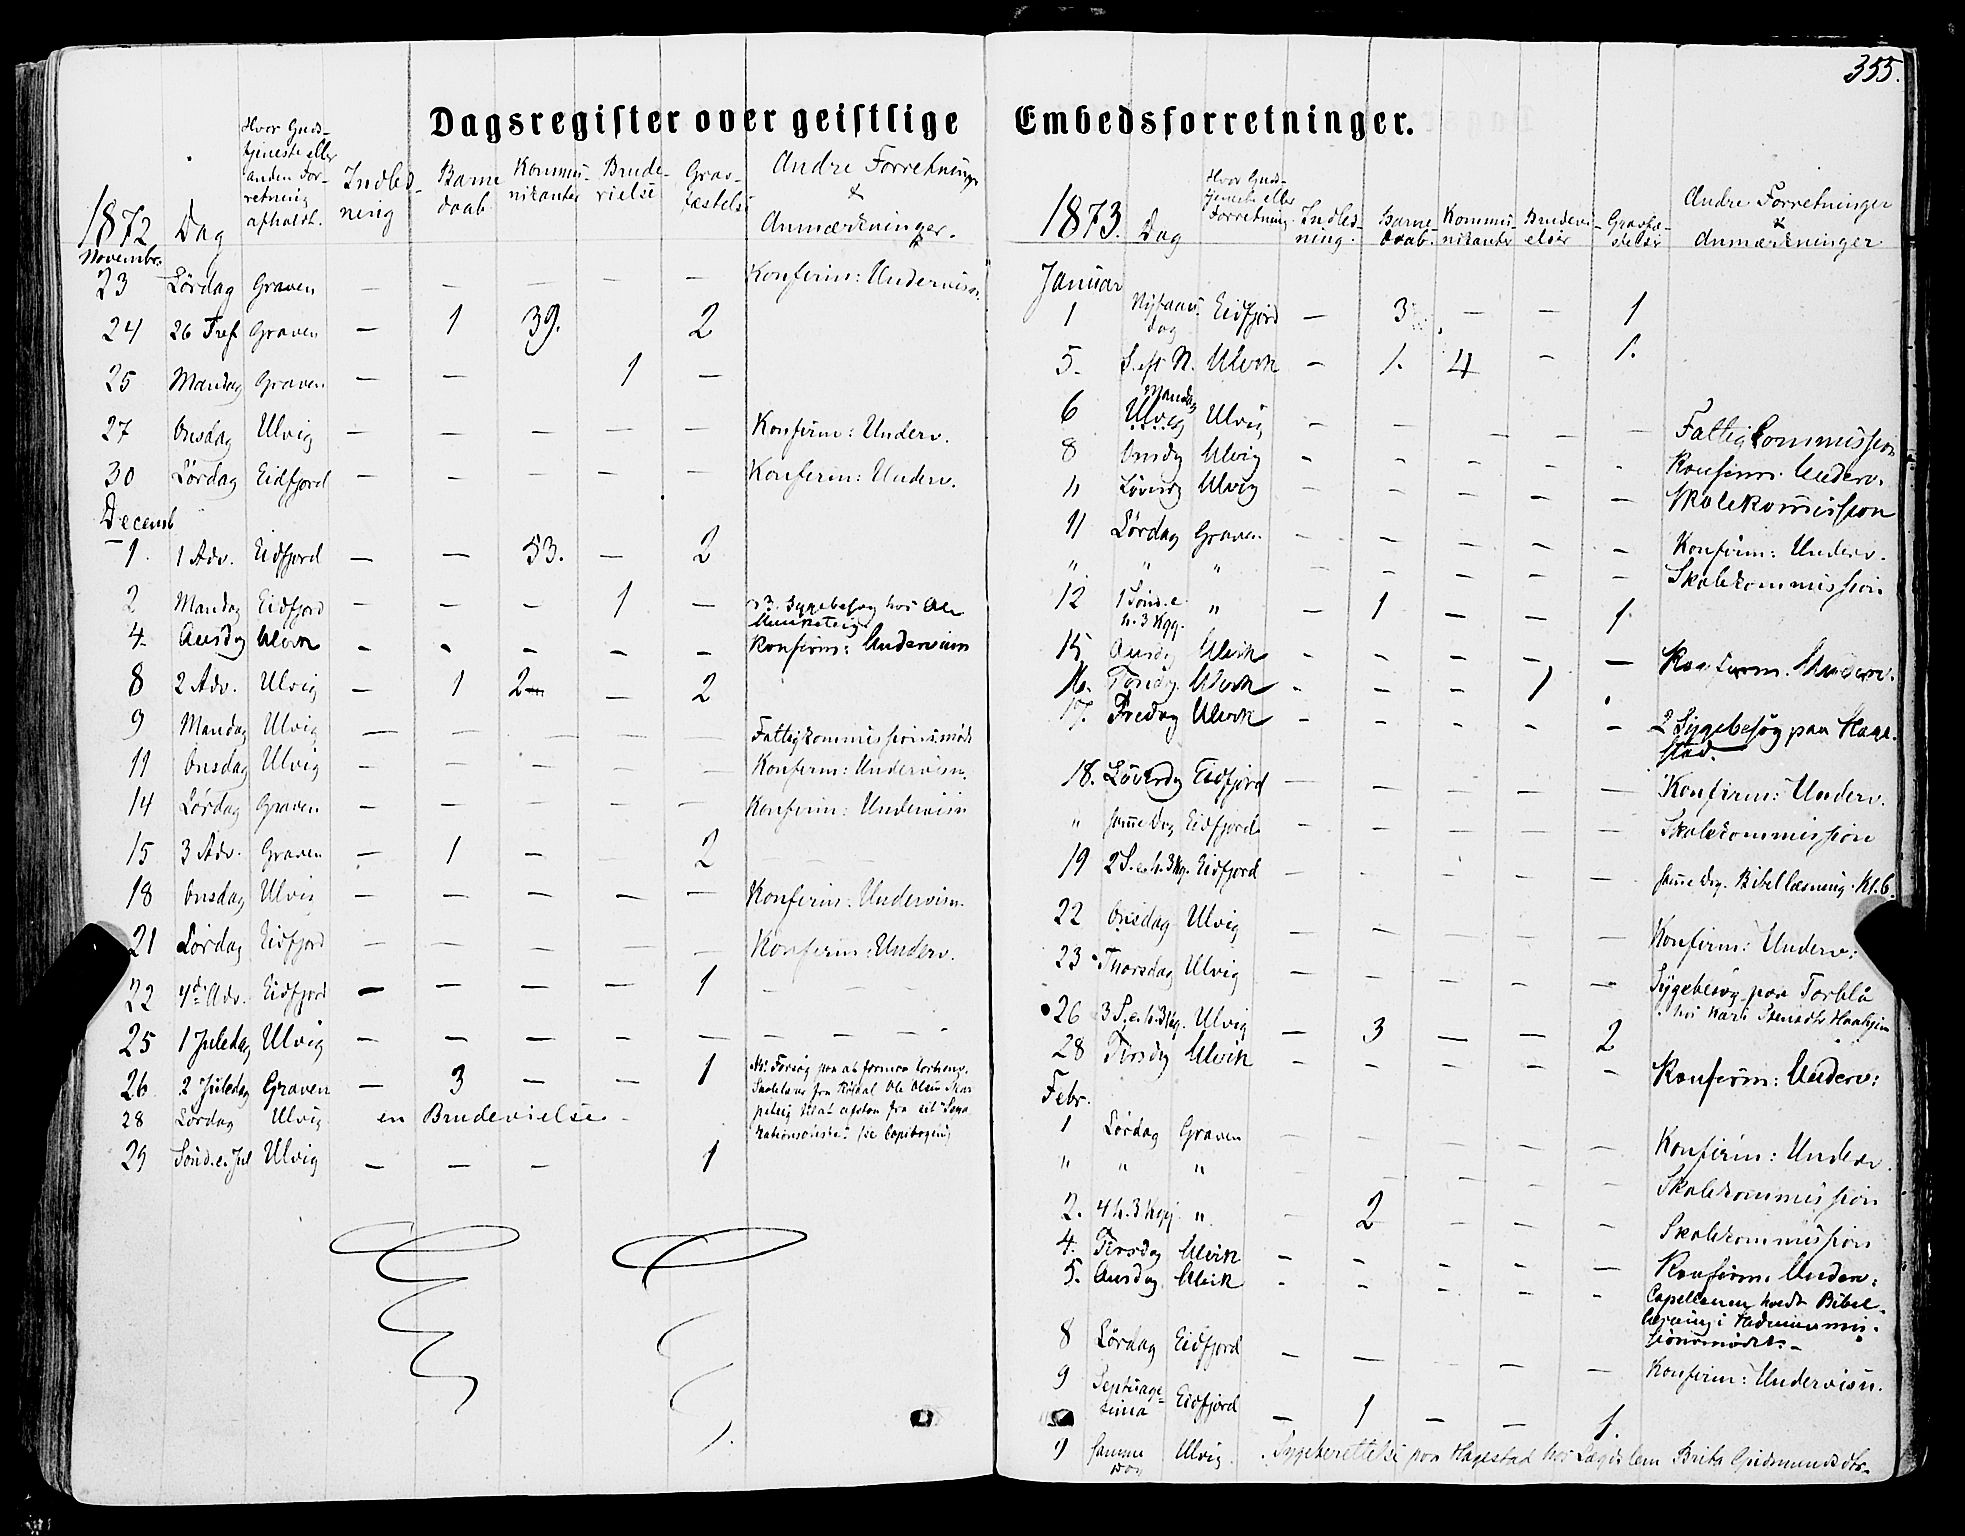 355.
Dagsregister over geistlige Embedsforretninger.
1872 Dag Hvor Guds-tjeneste eller anden For-retning afholdt. Indled-ning Barne daab Kommu-nikanter Brude-vielse Grav-fæstelse Andre Forretninger & Anmærkninger.
Novembr.
23 Lørdag Graven — — — — — Konfirm: Undervisn.
24 26 Tref Graven — 1 39. 2
25 Mandag Graven — — 1 —
27 Onsdag Ulvig — — — — — Konfirm: Underv.
30 Lørdag Eidfjord — — — — — Konfirm: Underv.
Decemb
1. 1 Adv. Eidfjord — — 53. — 2
2 Mandag Eidfjord — — — 1 — 3. Sygebesøg hos Ole
4. Onsdag Ulvik — — — — — Konfirm: Undervisn
8 2 Adv. Ulvig — 1 2 — 2
9 Mandag Ulvig — — — — — Fattigkommissionsmøde
11 Onsdag Ulvig — — — — — Konfirm: Undervisn.
14 Lørdag Graven — — — — — Konfirm: Undervisn
15 3 Adv. Graven — 1 — 2
18 Onsdag Ulvig — — — — — Konfirm: Undervisn.
21 Lørdag Eidfjord — — — — — Konfirm: Underv.
22 4de Adv. Eidfjord — — — — 1
25 1 Juledag Ulvig — — — — —
26. 2 Juledag Graven — 3 — — 1 Forsøg paa at formaa
28 Lørdag Ulvig en Brudevielse
fra Ole Olsen
29 Sønd. e. Jul Ulvig — — — 1
1873. Dag Hvor Guds-tjeneste eller Forretning Indled-ning. Barne-daab. Kommu-nikanter Brudevi-elser Gravfæ-stelser Andre Forretninger & Anmærkninger
Januar
1 Nytaars dag Eidfjord — 3 — — 1
5. S. eft N. Ulvik — 1. 4 — 1.
6 Mandag Ulvig Ulvig — — — — — Fattigkommission
8 Onsdg Ulvig — — — — — Konfirm. Underv.
11 Ulvig — — — — — Skolekommission
11 Lørdag Graven — — — — — Konfirm: Underv.
" " " — — — — — Skolekommission
12 1 Sønd. e. h. 3 Kgg. " — 1 — — 1.
15 Onsdg Ulvik — — — — — Konfirm. Underv.
16. Torsdg. Ulvik — — — 1
17. Fredag Ulvik — — — — — 2 Sygebesøg paa Hage-
stad.
18. Løverdg Eidfjord — — — — — Konfirm: Underv.
" samme Dag Eidfjord — — — — — Skolekommission
19 2 S. e. h. 3 Kg. Eidfjord — — — — — samme Dag. Bibellæsning. Kl. 6.
22 Onsdag Ulvig — — — — — Konfirm: Underv:
23 Thorsdag Ulvig — — — — — Sygebesøg paa Torblå
26 3 S. e. h. 3 Kg. Ulvig — 3 — — 2
28 Tirsdg Ulvik — — — — — Konfirm: Underv:
Febr.
1 Lørdag Graven — — — — — Konfirm: Underv.
" " " — — — — — Skolekommission
2. 4 h. 3 Kgg. " — 2 — — — Skolekommission
4. Tirsdag Ulvik — — — — —
5. Onsdag Ulvik — — — — — Konfirm. Underv:
Capellanen holdt Bibel-
læsning i
8 Lørdag Eidfjord — — — — — Konfirm: Undervisn.
9 Septuage-sima Eidfjord — 1 — — 1.
9 samme Dag Ulvig. Sygeberettelse paa Hagestad hos Brita Gudmundsdtr.